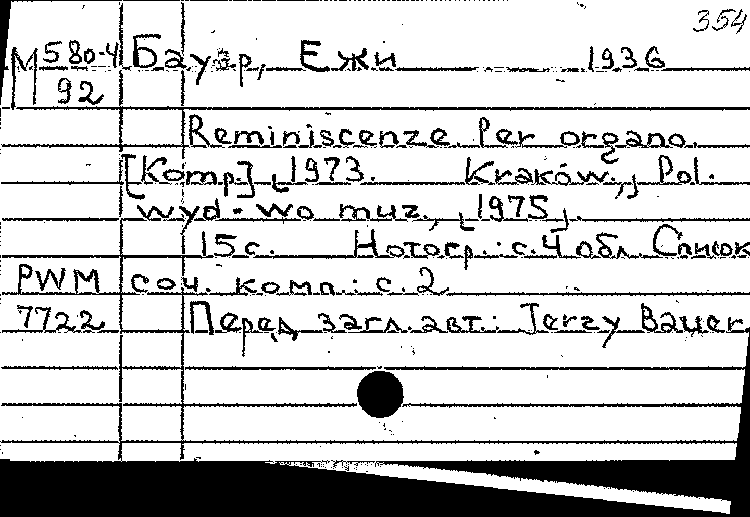 354
М 580-4 Бауэр, Ежи 1936
92
Reminiscenze. Per organo.
[Komp.] 1973. Kraków, Pol.
wyd-wo muz., 1975.
15 с. Нотогр.: с. 4 обл. Список
PWM соч. комп.: с. 2
7722 Перед загл. авт.: Jerzy Bauer